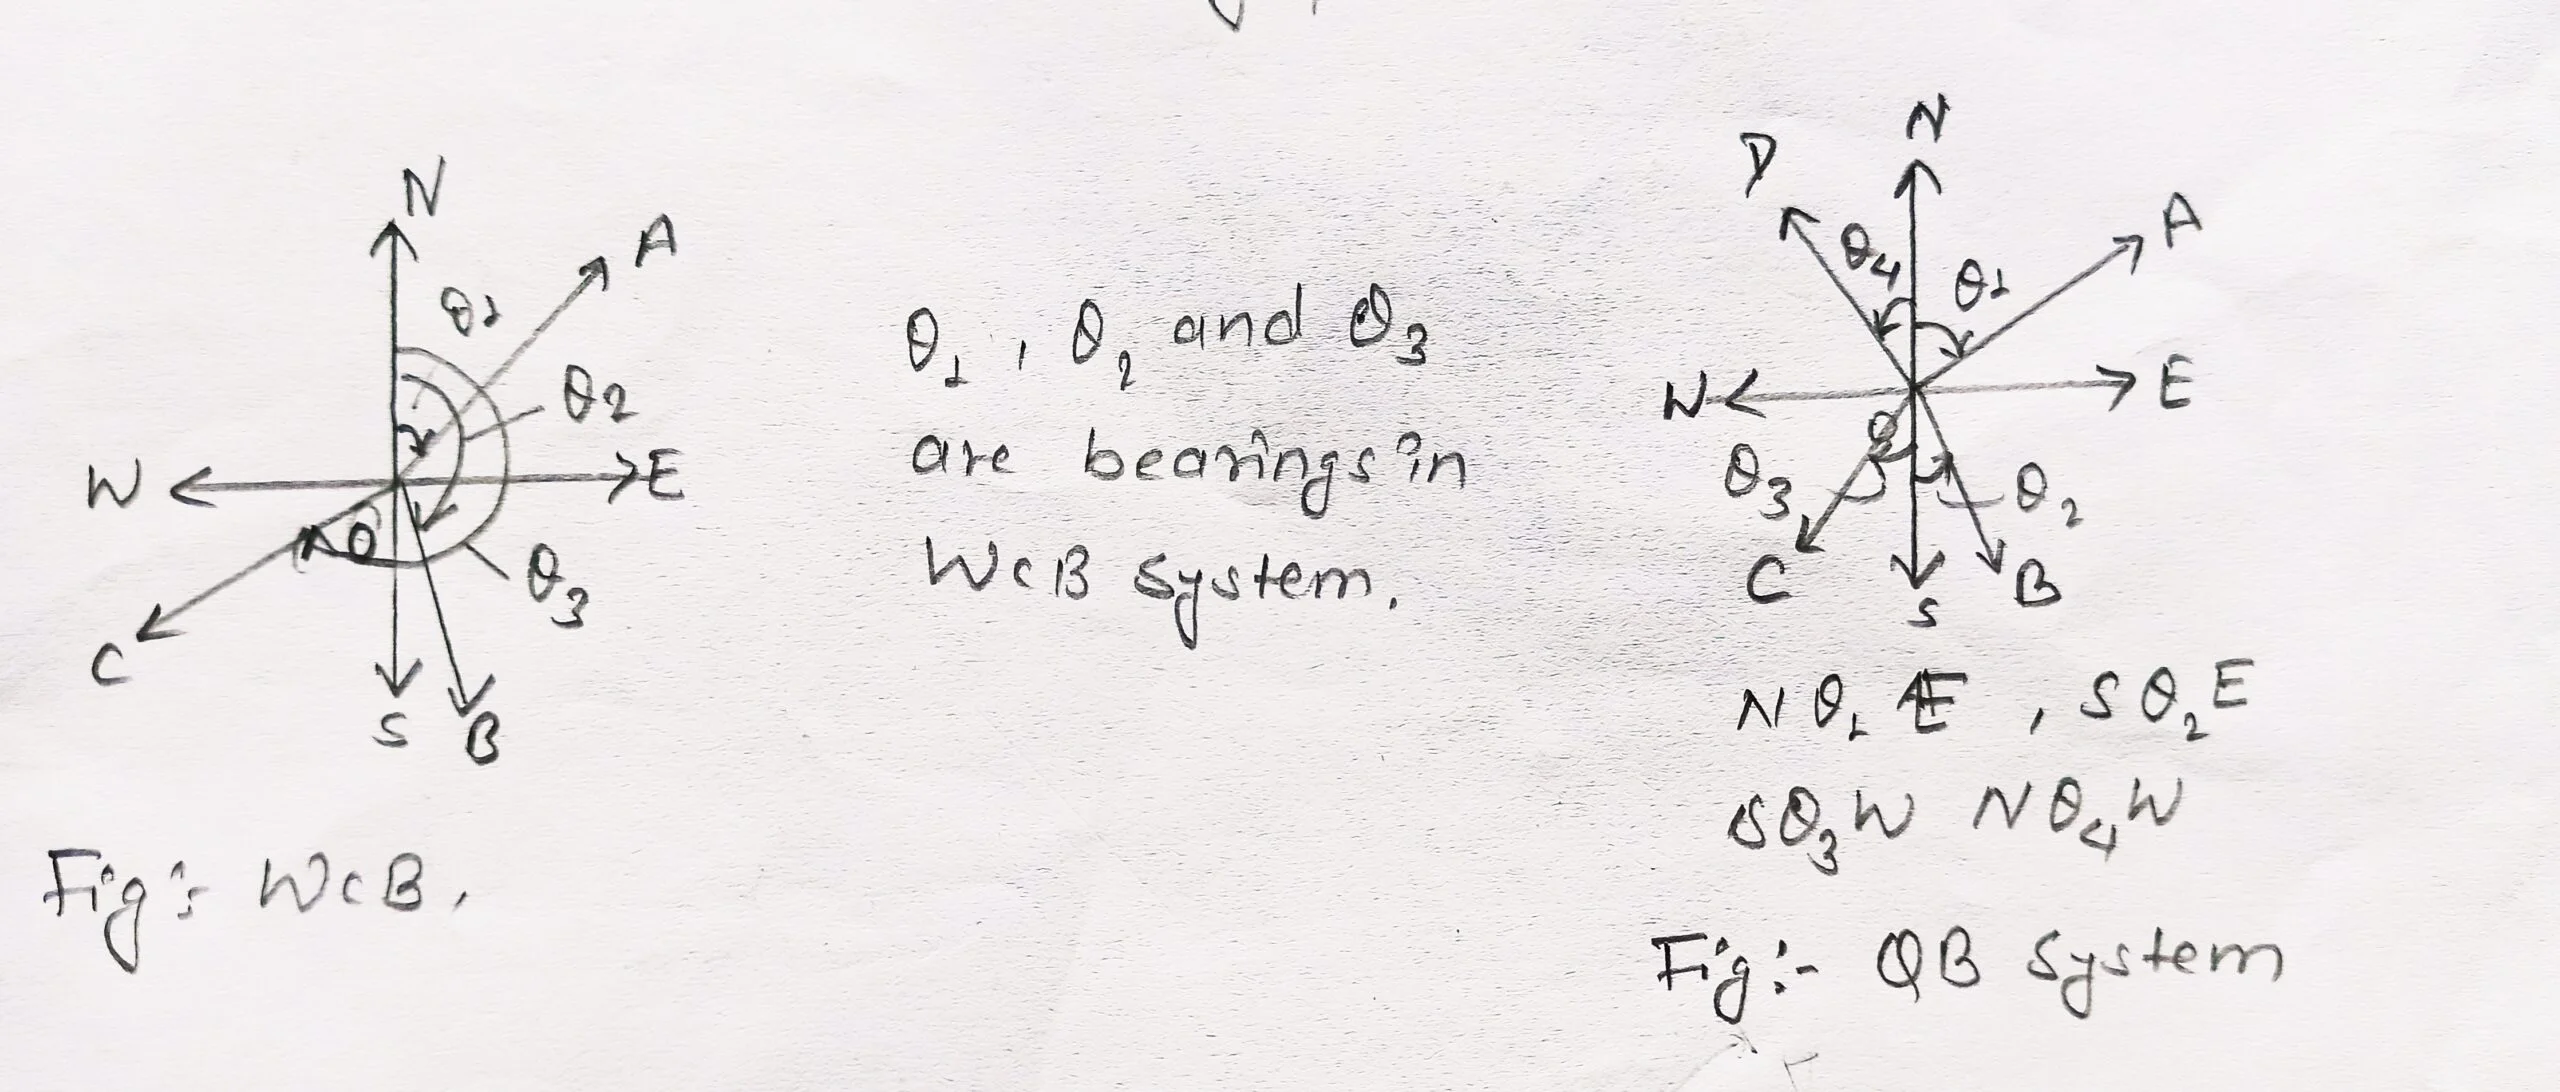 N
A
θ1
θ2
W
E
O
θ3
C
S
B
Fig :- WCB.
θ1, θ2 and θ3
are bearings in
WCB system.
N
D
A
θ4
θ1
W
E
O
θ3
θ2
C
B
S
Nθ1 E , Sθ2E
Sθ3W Nθ4W
Fig :- QB system